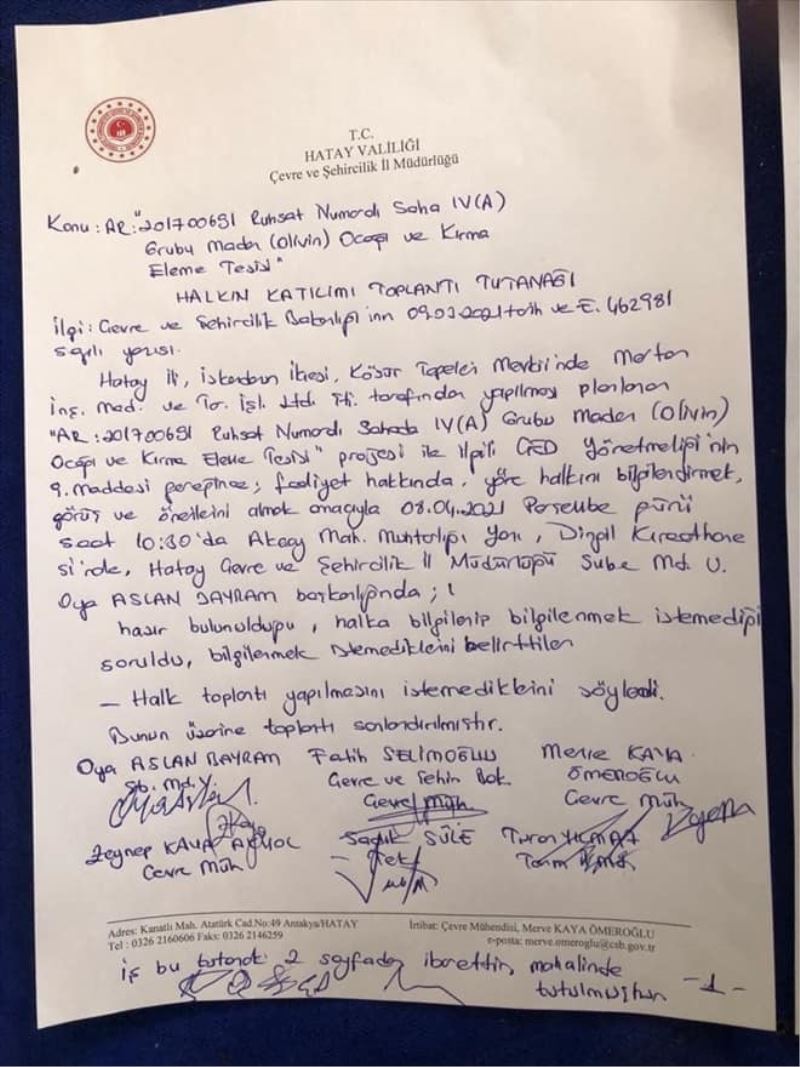 T.C.
HATAY VALİLİĞİ
Çevre ve Şehircilik İl Müdürlüğü
Konu : AR: "201700691 Ruhsat Numaralı Saha IV(A)
Grubu Maden (olivin) Ocağı ve Kırma
Eleme Tesisi"
HALKIN KATILIMI TOPLANTI TUTANAĞI
İlgi : Çevre ve Şehircilik Bakanlığı'nın 2021 tarih ve E. 462981
sayılı yazısı.
Hatay İli, İskenderun İlçesi, Tepeleri Mevkii'nde
İnş. Mad. ve Tur. İşl. Ltd. Şti. tarafından yapılması planlanan
"AR : 201700691 Ruhsat Numaralı Sahada IV(A) Grubu Maden (Olivin)
Ocağı ve Kırma Eleme Tesisi" projesi ile ilgili ÇED Yönetmeliği'nin
9. maddesi gereğince; faaliyet hakkında, yöre halkını bilgilendirmek,
görüş ve önerilerini almak amacıyla 08.04.2021 Perşembe günü
saat 10:30'da Akçay Mah. Muhtarlığı Yanı, Kıraathane
si'nde, Hatay Çevre ve Şehircilik İl Müdürlüğü Şube Md. V.
Oya ASLAN BAYRAM başkanlığında ;
hazır bulunulduğu, halka bilgilenip bilgilenmek istemediği
soruldu, bilgilenmek istemediklerini belirttiler
- Halk toplantı yapılmasını istemediklerini söyledi.
Bunun üzerine toplantı sonlandırılmıştır.
Oya ASLAN BAYRAM Fatih SELİMOĞLU Merve KAYA
Şb. Md. V. Çevre ve Şehir Bak. ÖMEROĞLU
Çevre Müh. Çevre Müh.
Zeynep KAYA Sadık ŞÜLE Turan YILMAZ
Çevre Müh.
Adres: Kanatlı Mah. Atatürk Cad.No:49 Antakya/HATAY İrtibat: Çevre Mühendisi, Merve KAYA ÖMEROĞLU
Tel : 0326 2160606 Faks: 0326 2146259 e-posta: merve.omeroglu@csb.gov.tr
iş bu tutanak 2 sayfadan ibarettir, mahalinde
tutulmuştur -1-